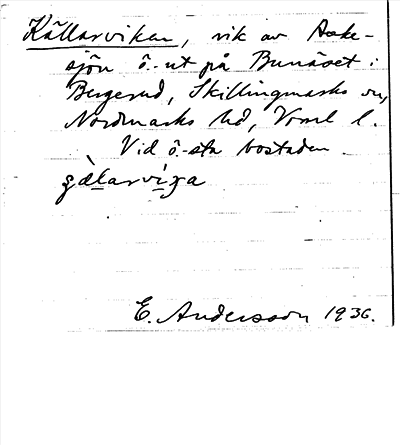 Källarviken, vik av Aske-
sjön ö.-ut på Bunäset i
Bergerud, Skillingmarks sn,
Nordmarks hd, Vrml l.
Vid ö.-sta bostaden
E. Andersson 1936.